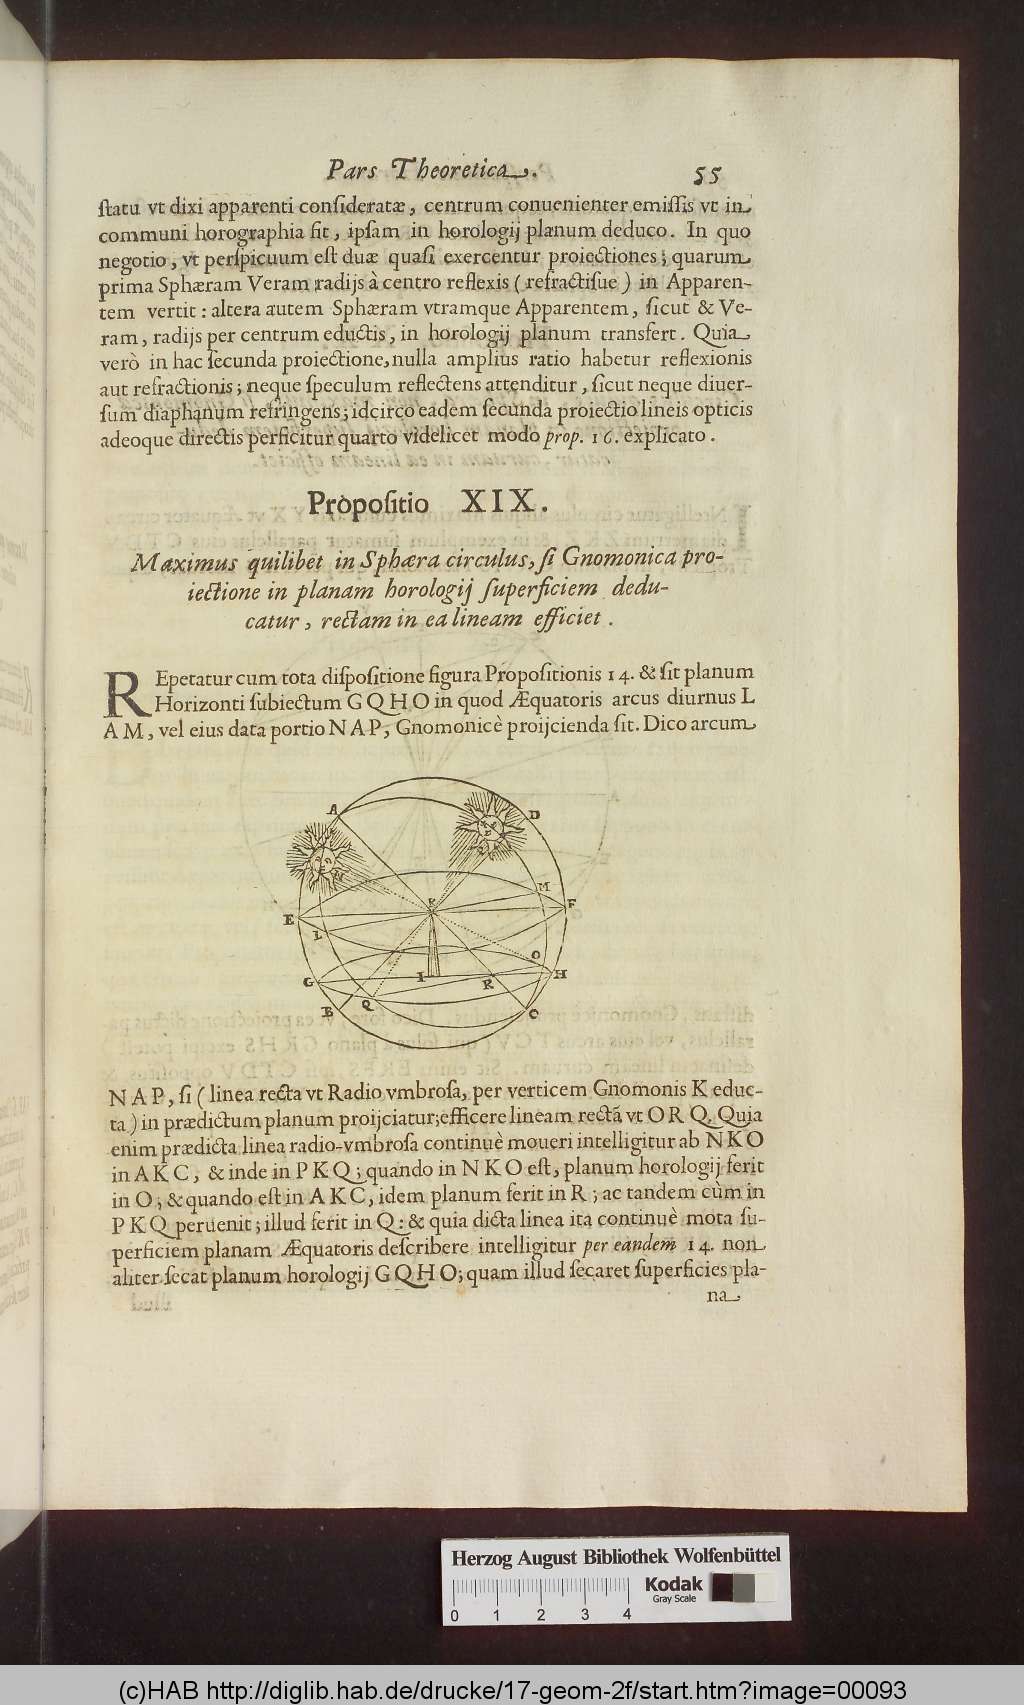 Pars Theoretica. 55
ſtatu vt dixi apparenti conſideratæ, centrum conuenienter emiſſis vt in
communi horographia fit, ipſam in horologij planum deduco. In quo
negotio, vt perſpicuum eſt duæ quaſi exercentur proiectiones; quarum
prima Sphæram Veram radijs à centro reflexis ( refractiſue ) in Apparen-
tem vertit : altera autem Sphæram vtramque Apparentem, ſicut & Ve-
ram, radijs per centrum eductis, in horologij planum transfert. Quia
verò in hac ſecunda proiectione, nulla amplius ratio habetur reflexionis
aut refractionis; neque ſpeculum reflectens attenditur, ſicut neque diuer-
ſum diaphanum refringens; idcirco eadem ſecunda proiectio lineis opticis
adeoque directis perficitur quarto videlicet modo prop. 16. explicato.
Propoſitio XIX.
Maximus quilibet in Sphæra circulus, ſi Gnomonica pro-
iectione in planam horologij ſuperficiem dedu-
catur, rectam in ea lineam efficiet.
REpetatur cum tota diſpoſitione figura Propoſitionis 14. & ſit planum
Horizonti ſubiectum G Q H O in quod Æquatoris arcus diurnus L
A M, vel eius data portio N A P, Gnomonicè proijcienda ſit. Dico arcum
A D
M
K
E F
L
O
G I R H
B Q C
N A P, ſi ( linea recta vt Radio vmbroſa, per verticem Gnomonis K educ-
ta ) in prædictum planum proijciatur; efficere lineam rectã vt O R Q. Quia
enim prædicta linea radio-vmbroſa continuè moueri intelligitur ab N K O
in A K C, & inde in P K Q; quando in N K O eſt, planum horologij ferit
in O; & quando eſt in A K C, idem planum ferit in R; ac tandem cùm in
P K Q peruenit; illud ferit in Q: & quia dicta linea ita continuè mota ſu-
perficiem planam Æquatoris deſcribere intelligitur per eandem 14. non
aliter ſecat planum horologij G Q H O; quam illud ſecaret ſuperficies pla-
na
Herzog August Bibliothek Wolfenbüttel
Kodak
Gray Scale
0 1 2 3 4
(c)HAB http://diglib.hab.de/drucke/17-geom-2f/start.htm?image=00093